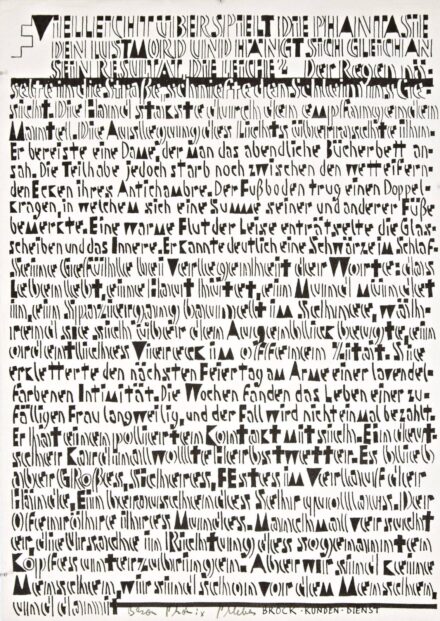 VIELLEICHT ÜBERSPIELT DIE PHANTASIE
DEN LUSTMORD UND HÄNGT SICH GLEICH AN
SEIN RESULTAT, DIE LEICHE? Der Regen näs
selte in die Straße, schniefte den Schleim ins Ge-
sicht. Die Hand stakste durch den empfangenden
Mantel. Die Auslegung des Lichts überraschte ihn.
Er bereiste eine Dame, der Man das abendliche Bücherbett an-
sah. Die Teilhabe jedoch starb noch zwischen den wetteifern-
den Ecken ihres Antichambre. Der Fußboden trug einen Doppel-
kragen, in welchem sich eine Summe seiner und anderer Füße
bemerkte. Eine warme Flut der Leise enträtselte die Glas-
scheiben und das Innere. Er kannte deutlich eine Schwärze im Schlaf
Seine Gefühle bei Verlegenheit der Worte: das
Leben lebt, eine Haut hütet, ein Mund mündet
in ein Spaziergang baumelt im Schnee, wäh-
rend sie sich über den Augenblick beugte, ein
ordentliches Viereck im offenen Zitat. Sie
erkletterte den nächsten Feiertag am Arme einer lavendel-
farbenen Intimität. Die Wochen fanden das Leben einer zu-
fälligen Frau langweilig, und der Fall wird nicht einmal bezahlt.
Er hat einen polierten Kontakt mit sich. Ein deut-
scher Kardinal wollte Herbstwetter. Es blieb
aber Großes, Sicheres, Festes im Verlauf der
Hände. Ein berauschendes Sehr quoll aus. Der
Ofenröhre ihres Mundes. Manchmal versucht
er, die Urkache in Richtung des sogenannten
Kopfes unterzubringen. Aber wir sind keine
Menschen, wir sind schon vor dem Menschen,
und damit
BROCK · KUNDEN · DIENST